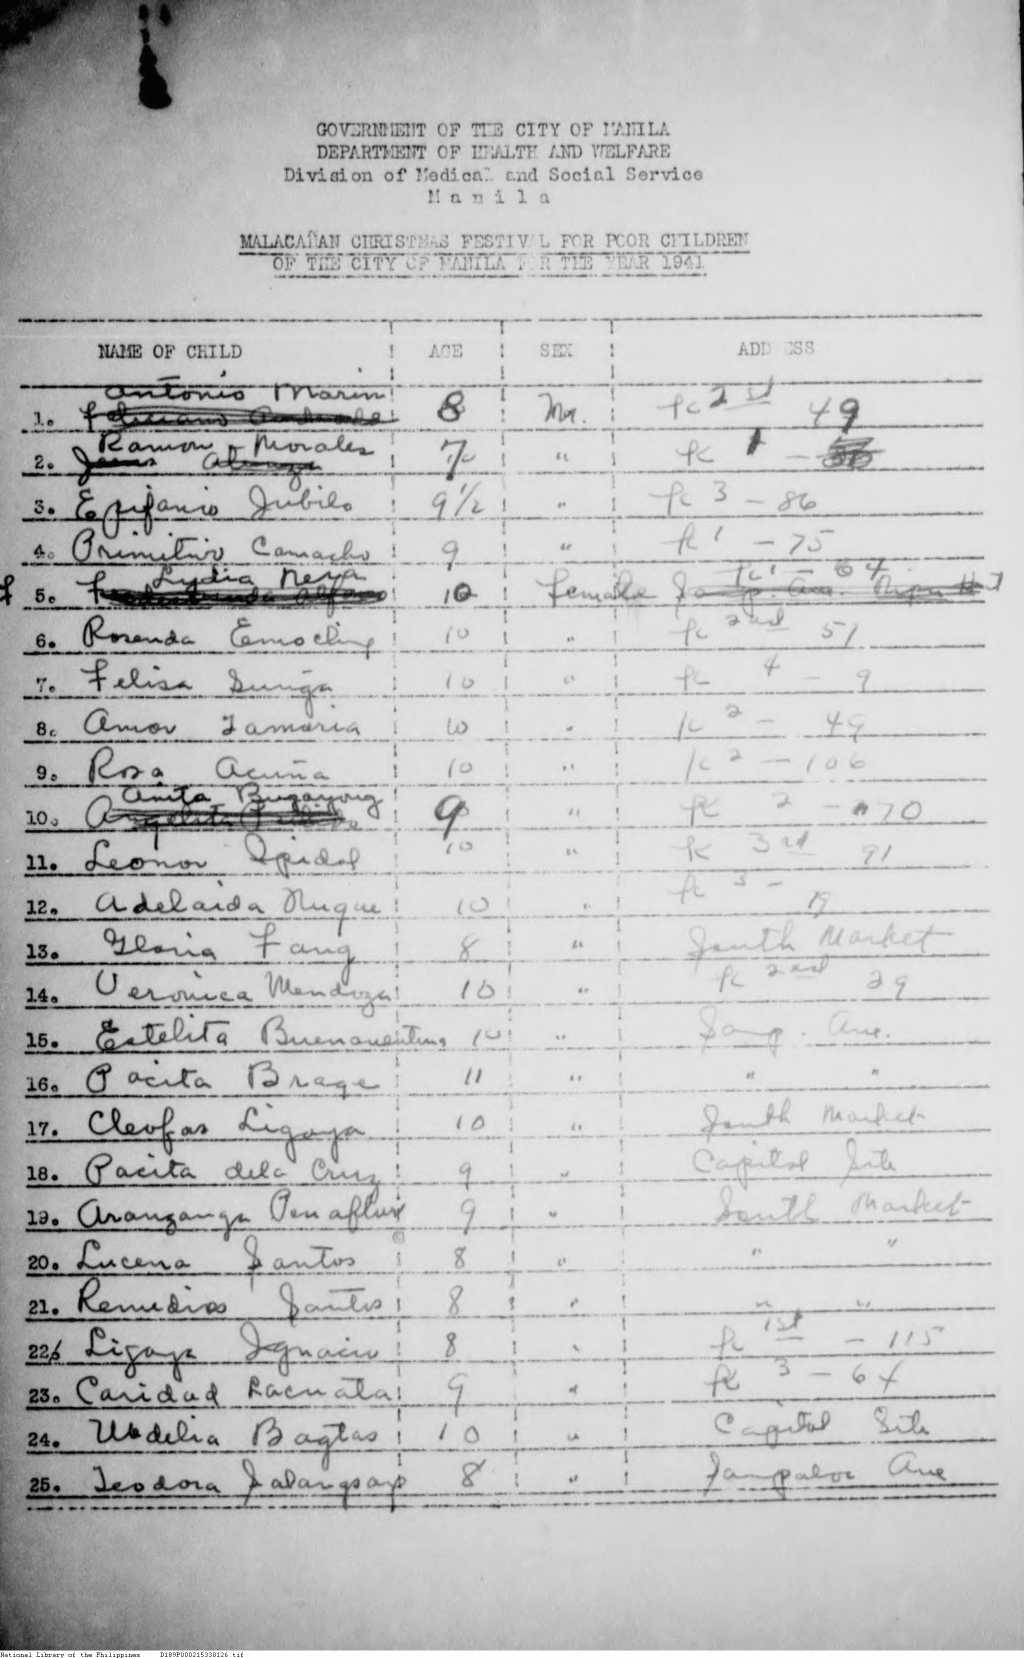 GOVERNMENT OF THE CITY OF MANILA
DEPARTMENT OF HEALTH AND WELFARE
Division of Medical and Social Service
M a n i l a
MALACAÑAN CHRISTMAS FESTIVAL FOR POOR CHILDREN
OF THE CITY OF MANILA FOR THE YEAR 1941
NAME OF CHILD AGE SEX ADDRESS
Antonio Marin
1. Feliciano 8 M. K 2nd 49
Ramon Morales
2. Jesus 7 " K 1 -
3. Epifanio Jubilo 9 1/2 " K 3 - 86
4. Primitivo Camacho 9 " K 1 - 75
Lydia Neya K 1 - 64
5. 10 Female
6. Rosenda Emocling 10 " K 2nd 51
7. Felisa Zuñga 10 " K 4 - 9
8. Amor Tamaria 10 " K 2 - 49
9. Rosa Acuña 10 " K 2 - 106
Anita Bugayong
10. Angelita 9 " K 2 - 70
11. Leonor Spidol 10 " K 3rd 91
12. Adelaida Nuque 10 " K 3 - 19
13. Gloria Fang 8 " South Market
14. Veronica Mendoza 10 " K 2nd 29
15. Estelita Buenaventura 10 " Samp. Ave.
16. Pacita Brage 11 " " "
17. Cleofas Ligaya 10 " South Market
18. Pacita dela Cruz 9 " Capitol Site
19. Aranzanga Penaflor 9 " South Market
20. Lucena Santos 8 " " "
21. Remedios Santos 8 " " "
22. Ligaya Ignacio 8 " K 1st - 115
23. Caridad Lacuata 9 " K 3 - 64
24. Udelia Bagtas 10 " Capitol Site
25. Teodora Salangsang 8 " Sampaloc Ave
National Library of the Philippines D189P000215330126.tif